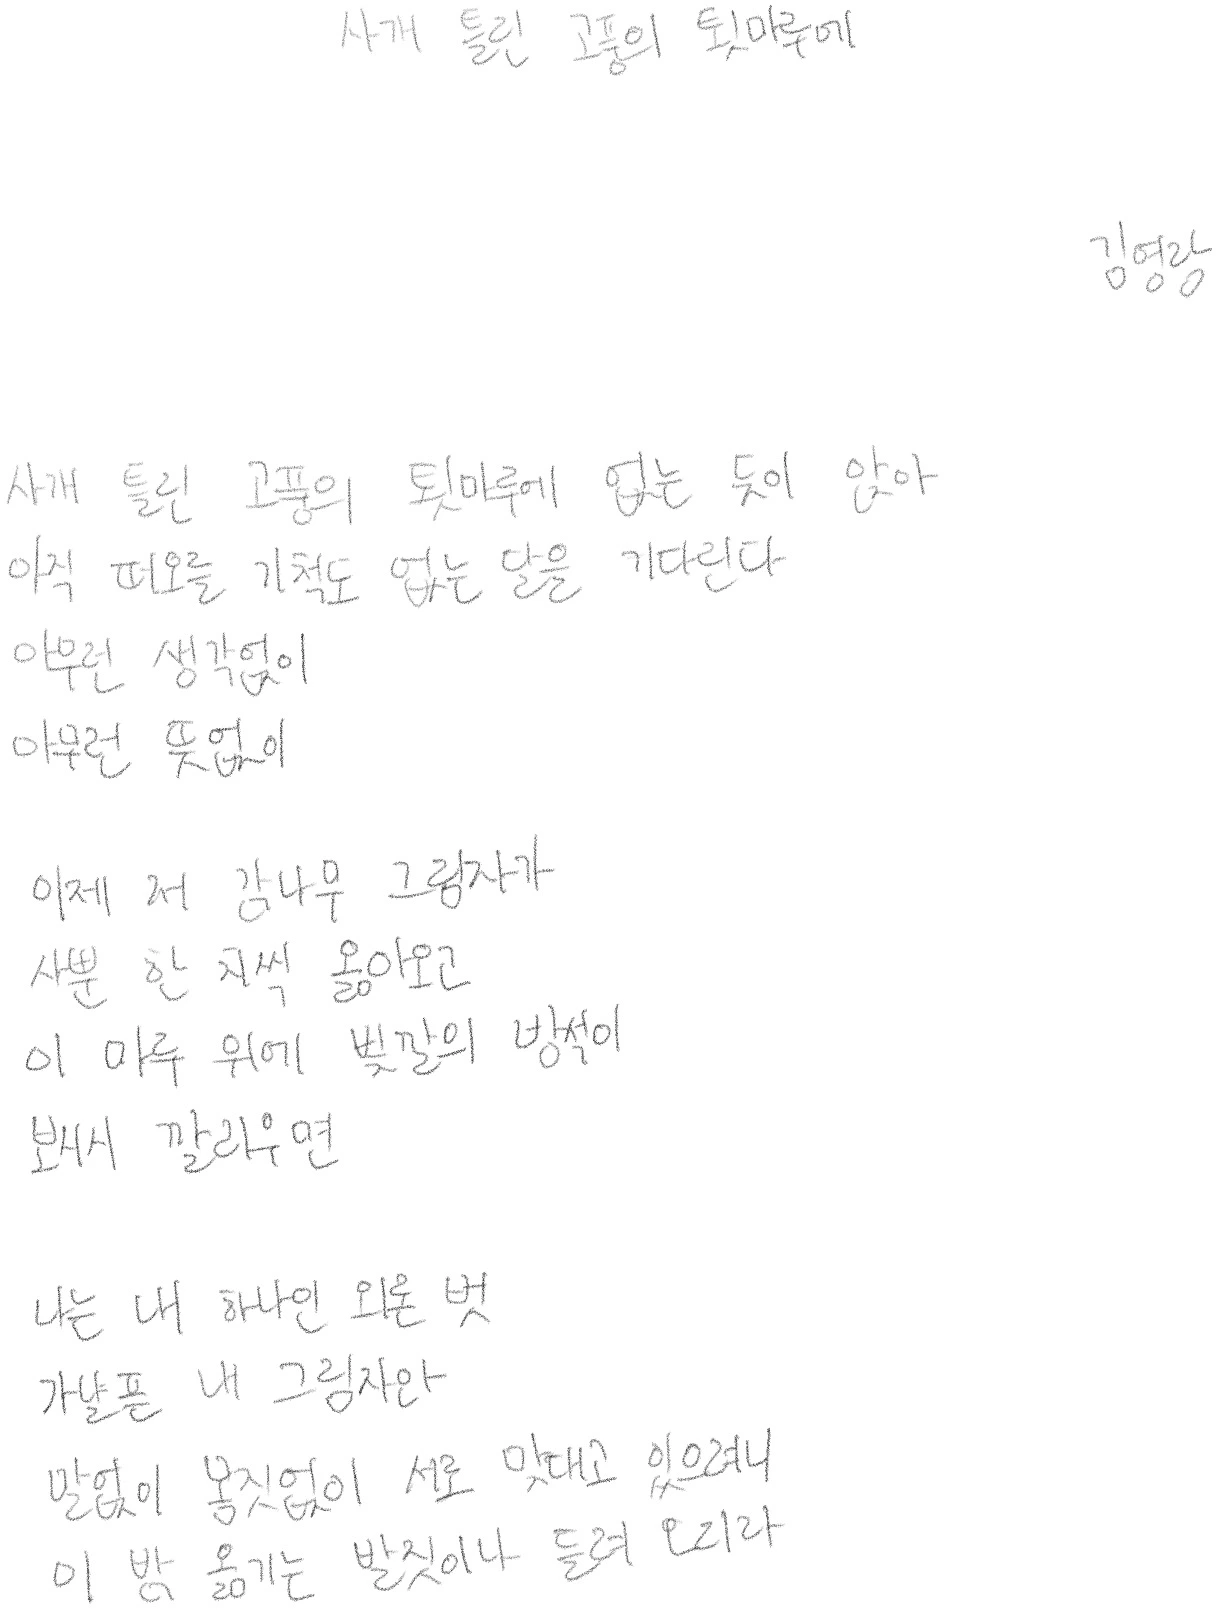 사개 틀린 고풍의 툇마루에
김영랑
사개 틀린 고풍의 툇마루에 없는 듯이 앉아
아직 떠오를 기척도 없는 달을 기다린다
아무런 생각없이
아무런 뜻없이
이제 저 감나무 그림자가
사뿐 한 치씩 옮아오고
이 마루 위에 빛깔의 방석이
보시시 깔리우면
나는 내 하나인 외론 벗
가냘픈 내 그림자와
말없이 몸짓없이 서로 맞대고 있으려니
이 밤 옮기는 발짓이나 들려 오리라